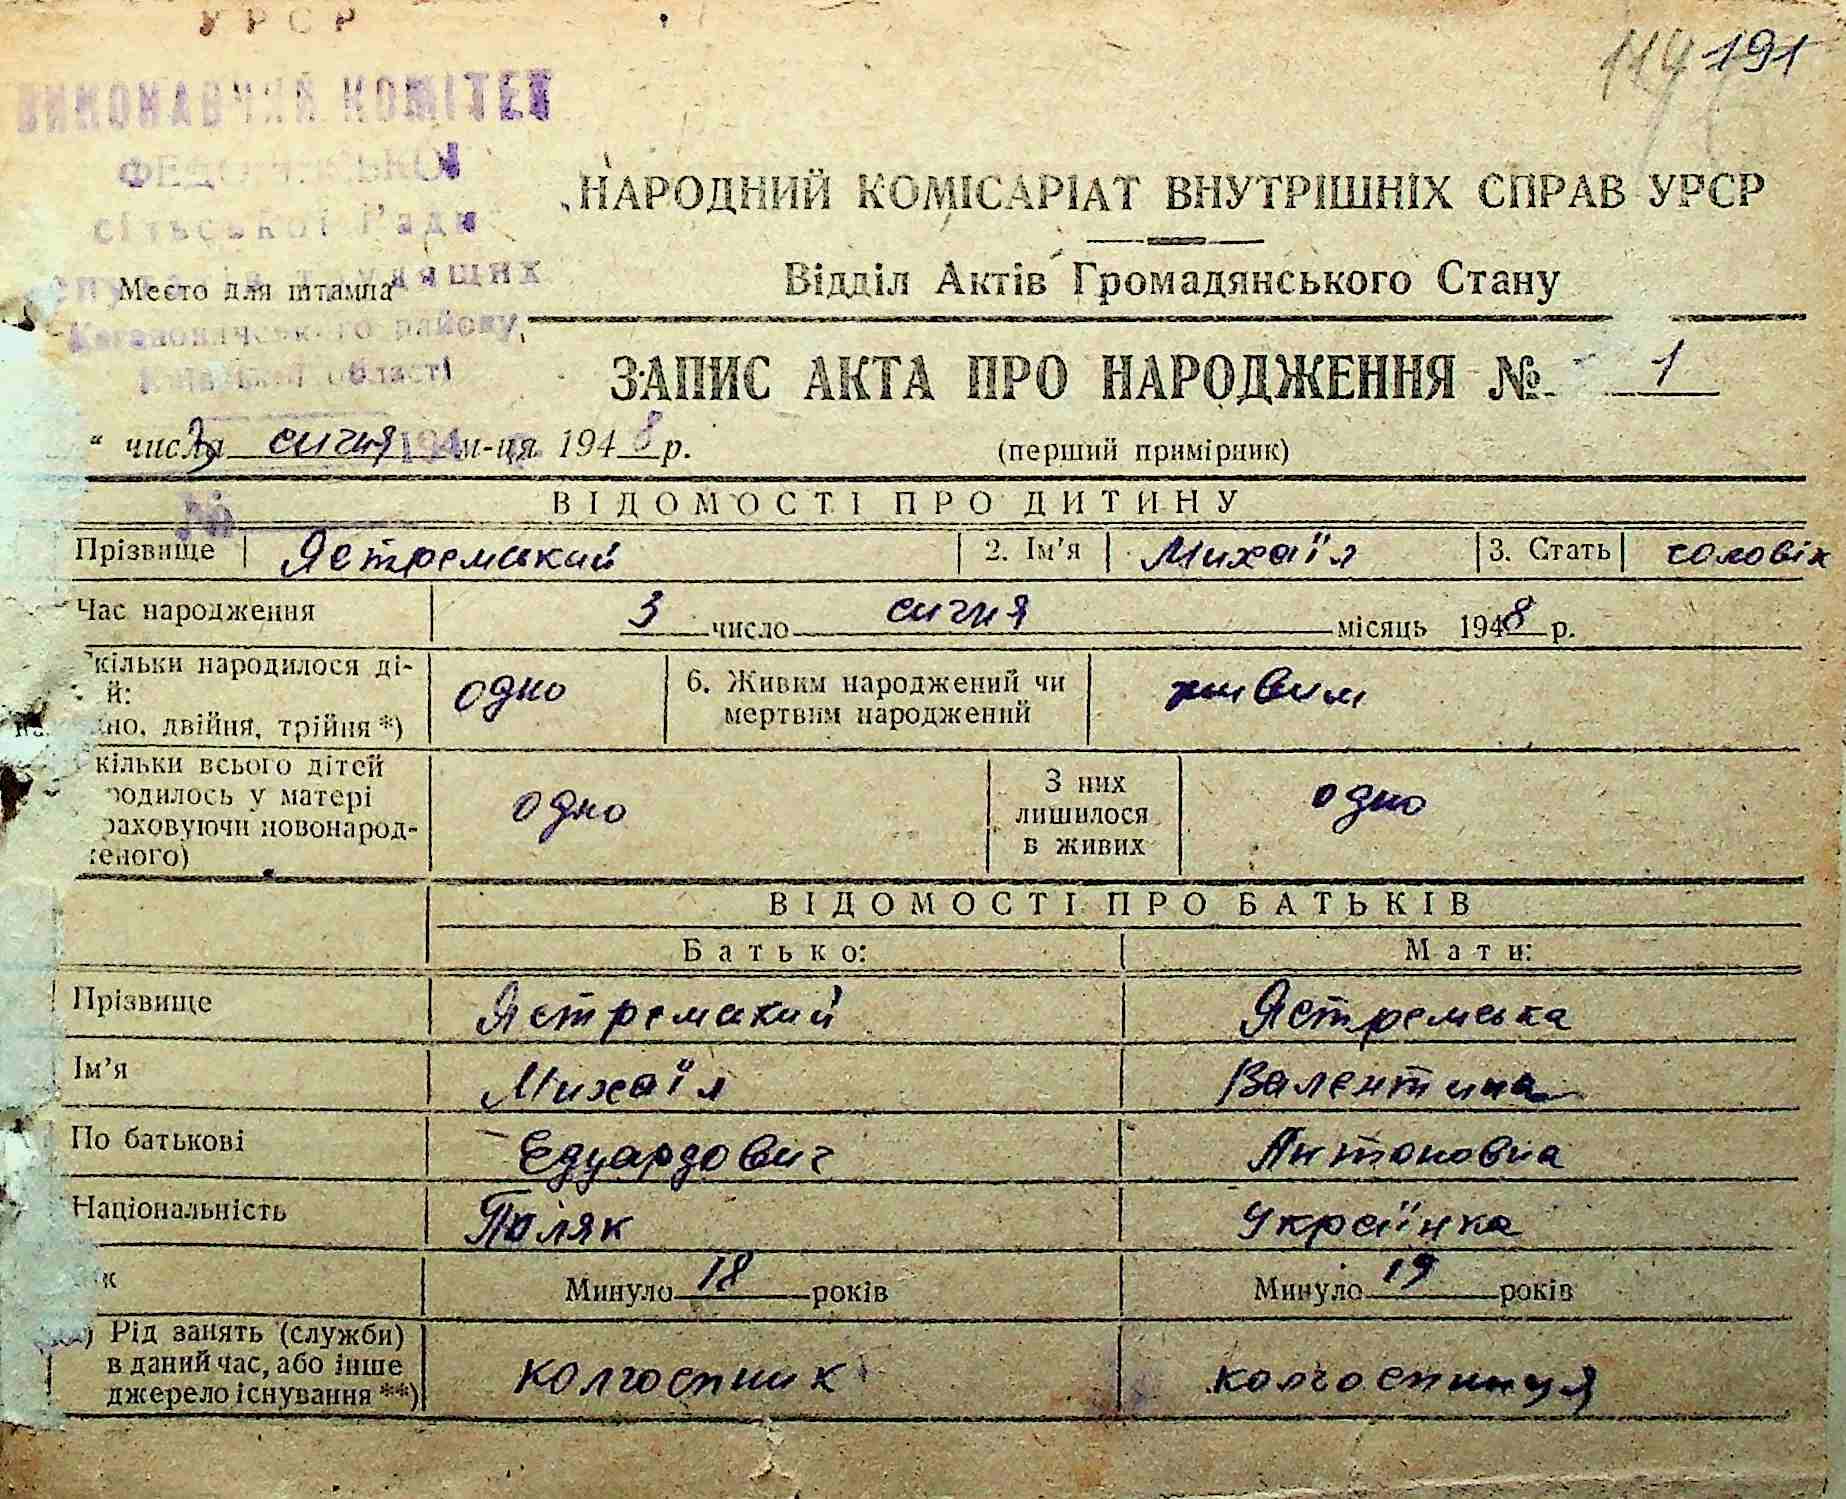 УРСР
ВИКОНАВЧИЙ КОМІТЕТ
сільської Ради
Кагановичського району,
Київської області
Место для штампа
191
НАРОДНИЙ КОМІСАРІАТ ВНУТРІШНІХ СПРАВ УРСР
Відділ Актів Громадянського Стану
ЗАПИС АКТА ПРО НАРОДЖЕННЯ № 1
" числа 3 сичня м-ця 1948 р. (перший примірник)
№
ВІДОМОСТІ ПРО ДИТИНУ
Прізвище Ястремський 2. Ім'я Михаїл 3. Стать чоловік
Час народження 3 число сичня місяць 1948 р.
кільки народилося ді-
й:
но, двійня, трійня *) одно 6. Живим народжений чи
мертвим народжений живим
кільки всього дітей
родилось у матері
раховуючи новонарод-
еного) одно З них
лишилося
в живих одно
ВІДОМОСТІ ПРО БАТЬКІВ
Батько: Мати:
Прізвище Ястремский Ястремська
Ім'я Михаїл Валентина
По батькові Едуардович Антоновна
Національність Поляк Украінка
к Минуло 18 років Минуло 19 років
) Рід занять (служби)
в даний час, або інше
джерело існування **) колгоспник колгоспниця